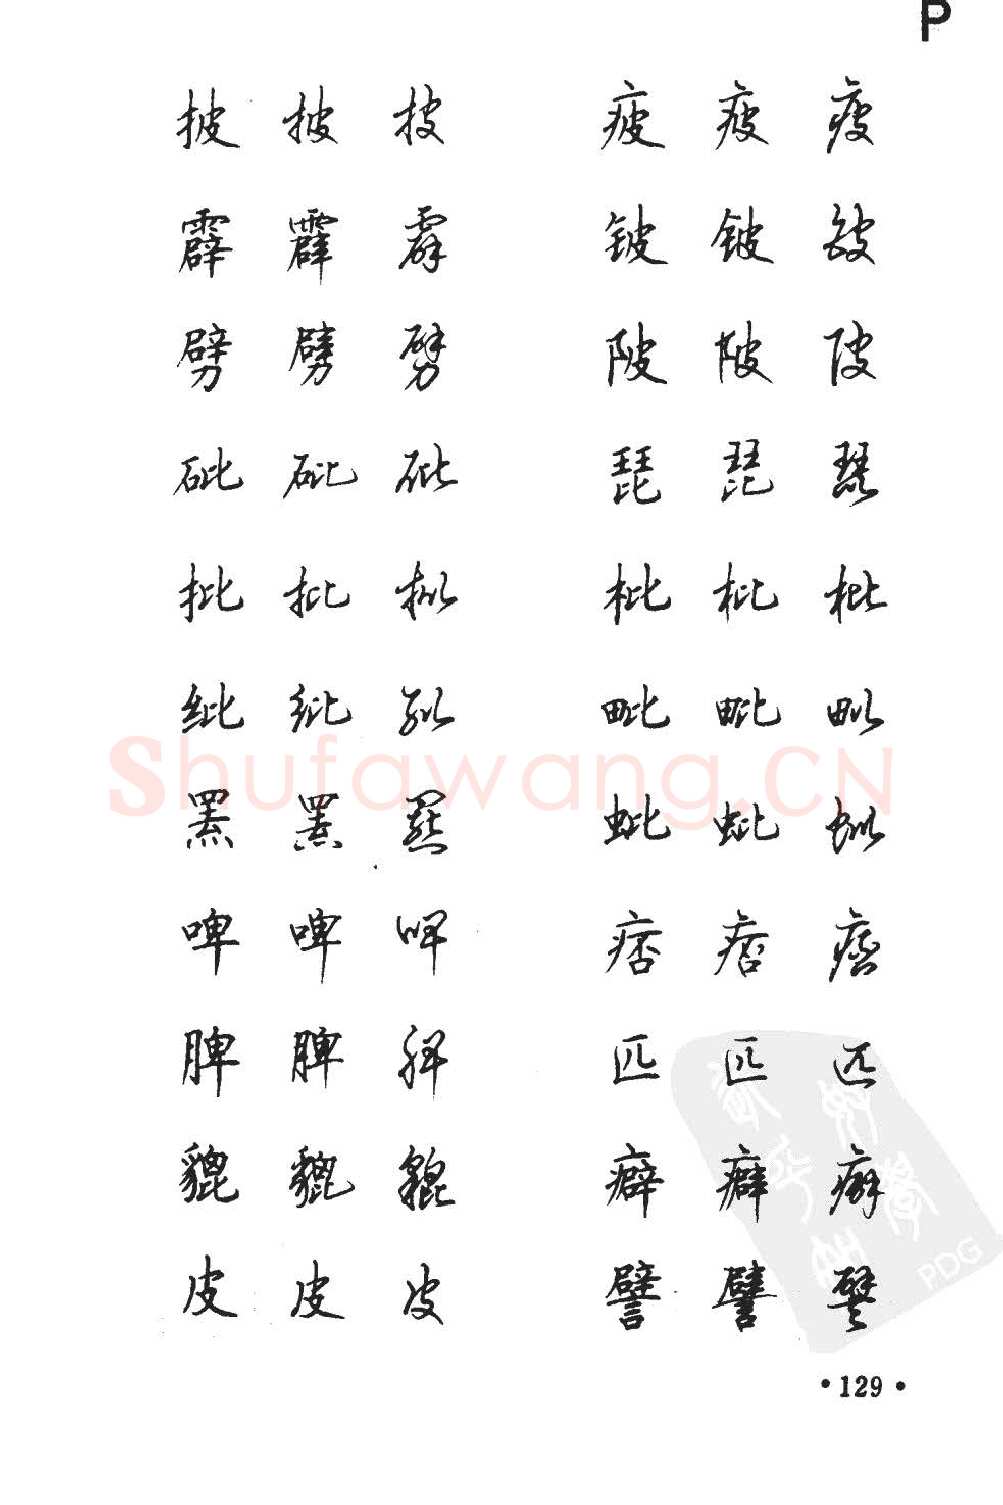 P
披 披 披 疲 疲 疲
霹 霹 霹 铍 铍 铍
劈 劈 劈 陂 陂 陂
砒 砒 砒 琵 琵 琵
批 批 批 枇 枇 枇
纰 纰 纰 毗 毗 毗
罴 罴 罴 蚍 蚍 蚍
啤 啤 啤 痞 痞 痞
脾 脾 脾 匹 匹 匹
貔 貔 貔 癖 癖 癖
皮 皮 皮 譬 譬 譬
Shufawang.CN
PDG
•129•